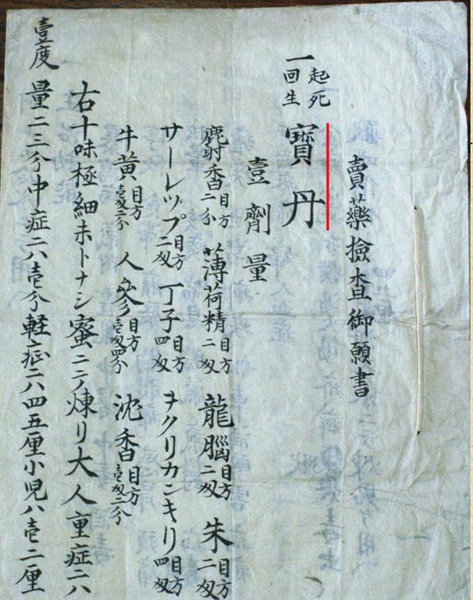 賣藥檢査御願書
一起死回生 寳丹
壹劑量
麝香目方二分 薄荷精目方二匁 龍腦目方二匁 朱目方二匁
サーレップ目方二匁 丁子目方四匁 ヲクリカンキリ目方四匁
牛黄目方壹匁二分 人參目方壹匁四分 沈香目方壹匁二分
右十味極細末トナシ蜜ニテ煉リ大人重症ニハ
壹度量二三分中症ニハ壹分軽症ニハ四五厘小児ハ壹二厘